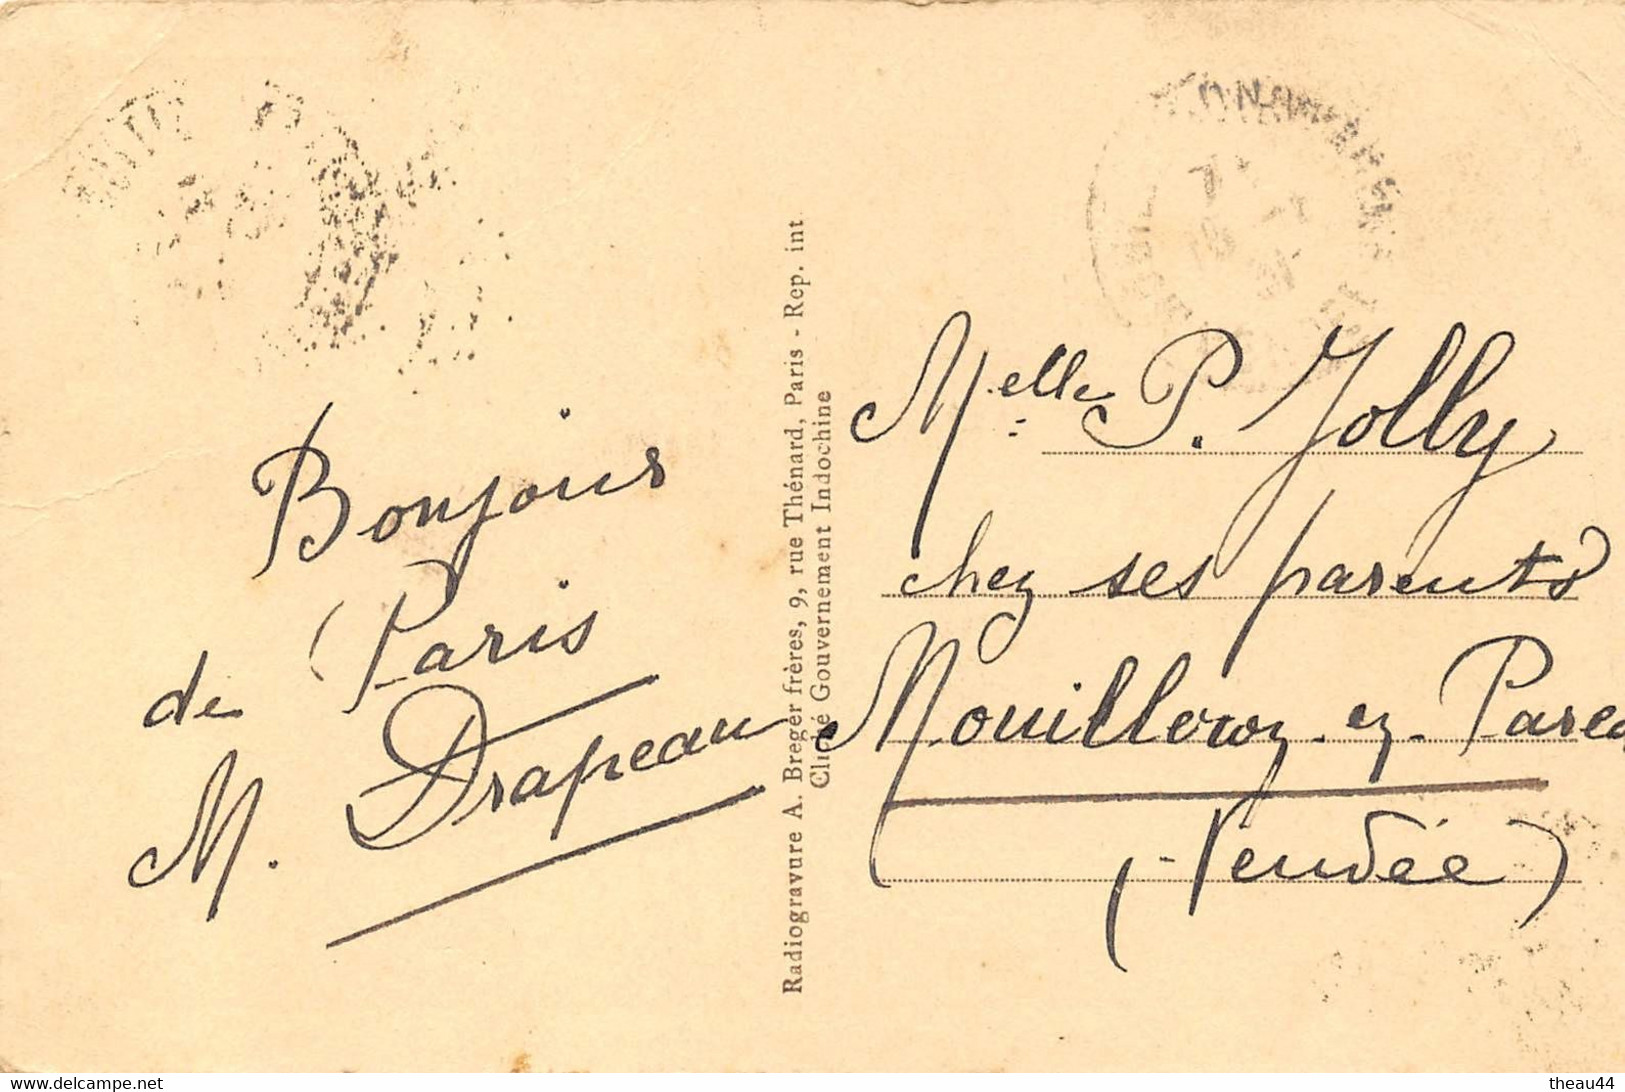 Bonjour
de Paris
M. Drapeau
Radiogravure A. Breger frères, 9, rue Thénard, Paris - Rep. int
Cliché Gouvernement Indochine
Melle P. Jolly
chez ses parents
Mouilleron en Pared
(Vendée)
www.delcampe.net
theau44